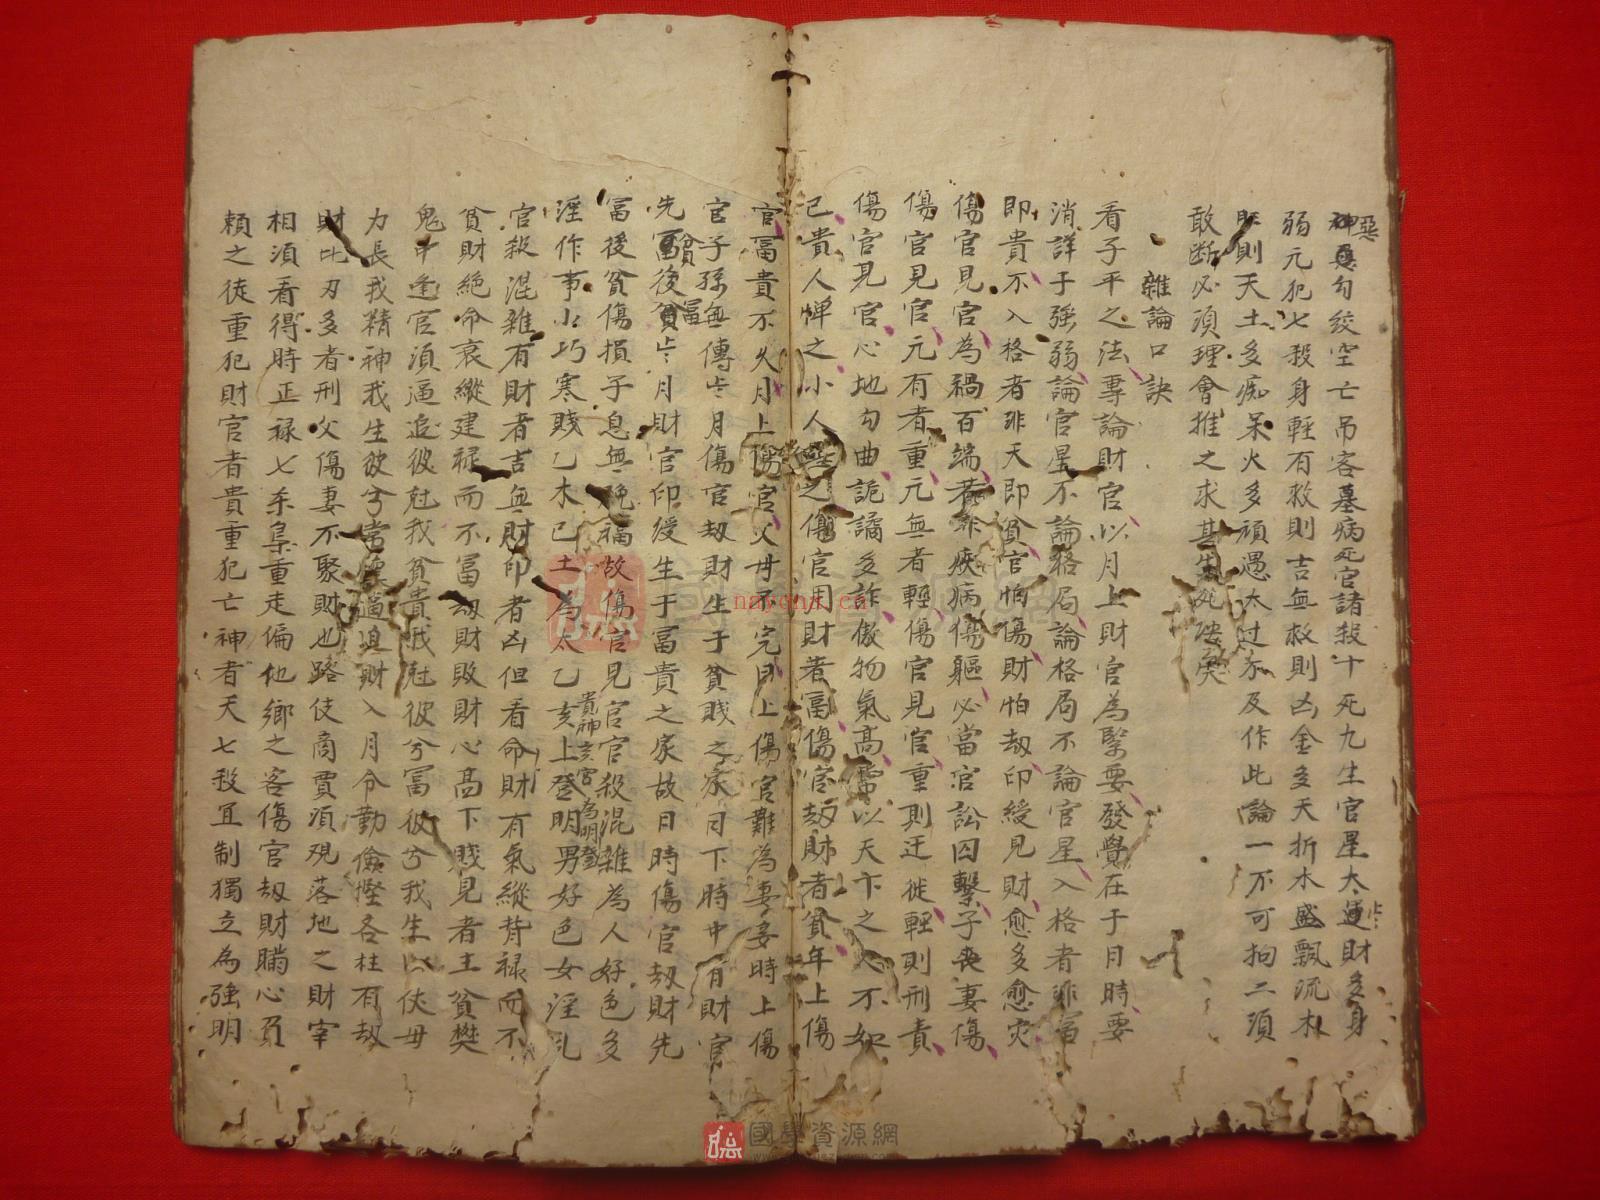 神惡勾絞空亡吊客墓病死官諸殺十死九生官星大運財多身
弱元犯七殺身輕有救則吉無救則凶金多夭折木盛飄流木
旺則夭土多痴呆火多頑愚太過不及作此論一不可拘二須
敢断必須理會推之求其生死
雜論口訣
看子平之法專論財官以月上財官為緊要發覺在于日時要
消詳于強弱論官星不論格局論格局不論官星入格者非富
即貴不入格者非夭即貧官怕傷財怕劫印綬見財愈多愈灾
傷官見官為禍百端若非疾病傷軀必當官訟囚繫子喪妻傷
傷官見官元有者重元無者輕傷官見官重則迁徙輕則刑責
傷官見官心地勾曲詭譎多詐傲物氣高常以天下之人不如
己貴人憚之小人之傷官用財者富傷官劫財者貧年上傷
官富貴不久月上傷官父母不完日上傷官難為妻妾時上傷
官子孫無傳歲月傷官劫財生于貧賤之家日下時中有財官
先貧後富歲月財官印綬生于富貴之家故日時傷官劫財先
富後貧傷損子息無晚福故傷官見官官殺混雜為人好色多
淫作事小巧寒賤乙木己土為太乙貴神亥宮亥上登明為明登男好色女淫乱
官殺混雜有財者吉無財印者凶但看命財有氣縱背祿而不
貧財絕命衰縱建祿而不富劫財敗財心高下賤見者主貧樊
鬼中逢官須逼迫彼尅我貧貴我尅彼兮富彼兮我生以伕母
力長我精神我生彼兮常懷逼迫財入月令勤儉慳各柱有劫
財比刃多者刑父傷妻不聚財也路伎商賈須現落地之財宰
相須看得時正祿七杀梟重走偏他鄉之客傷官劫財瞞心負
賴之徒重犯財官者貴重犯亡神者夭七殺宜制獨立為強明